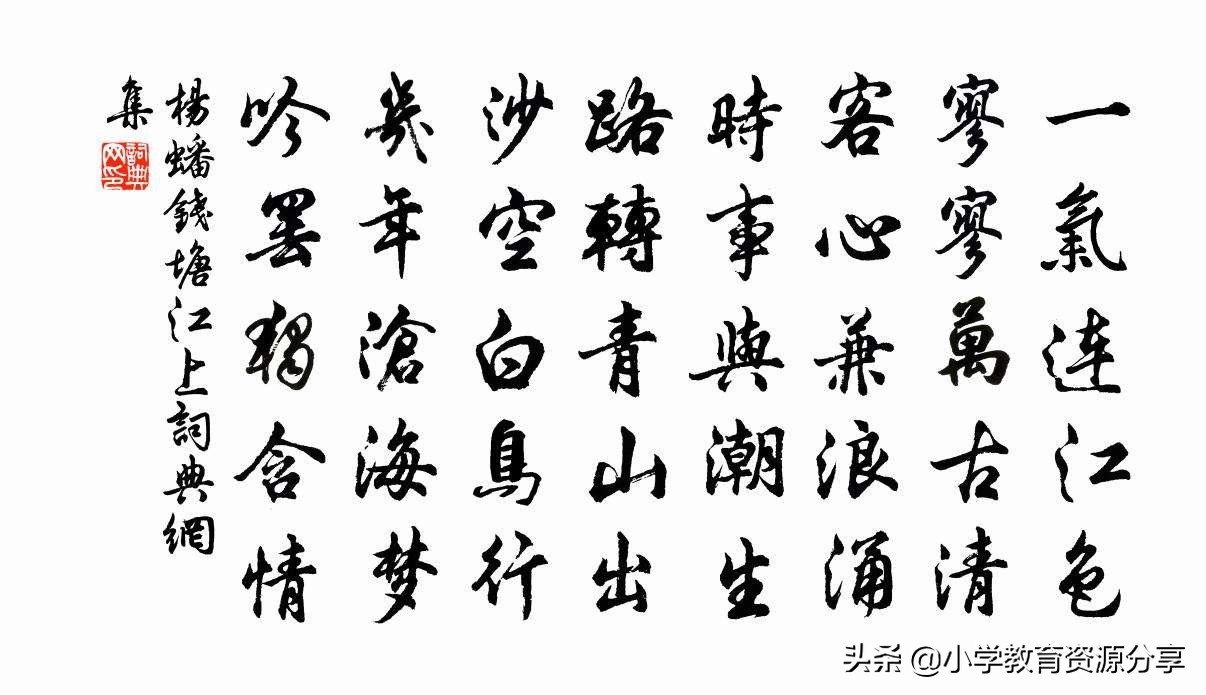 一氣連江色
寥寥萬古清
客心兼浪涌
時事與潮生
路轉青山出
沙空白鳥行
幾年滄海夢
吟罷獨含情
楊蟠錢塘江上詞典網
集
詞典網印
头条 @小学教育资源分享